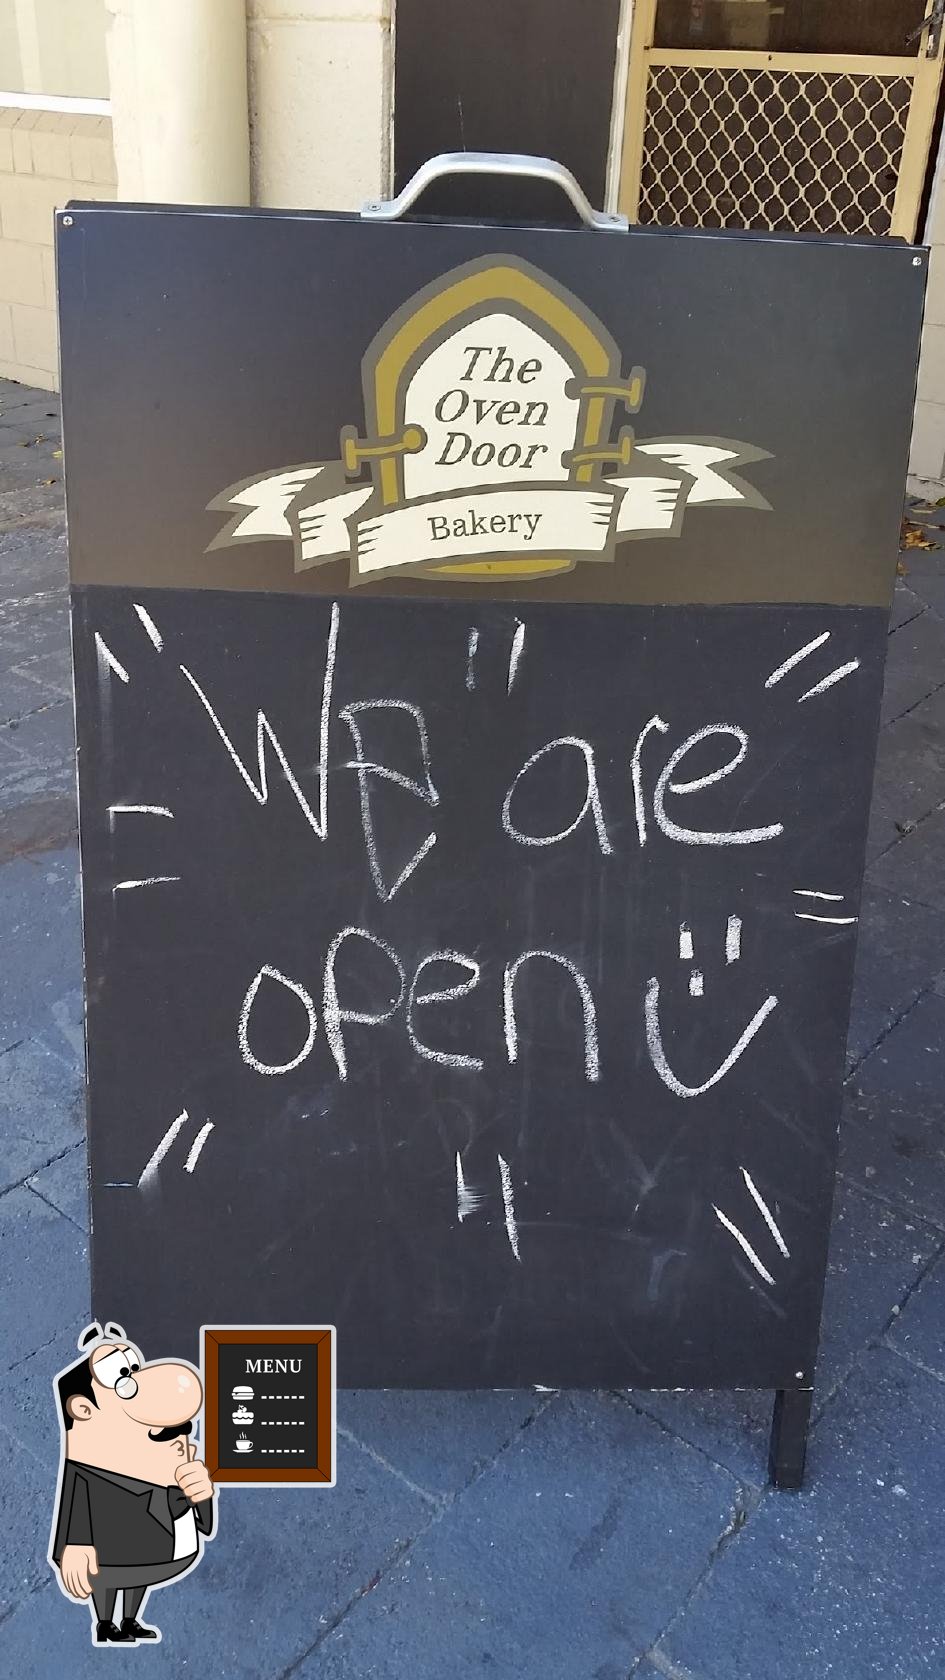 The
Oven
Door
Bakery
We are
open
MENU